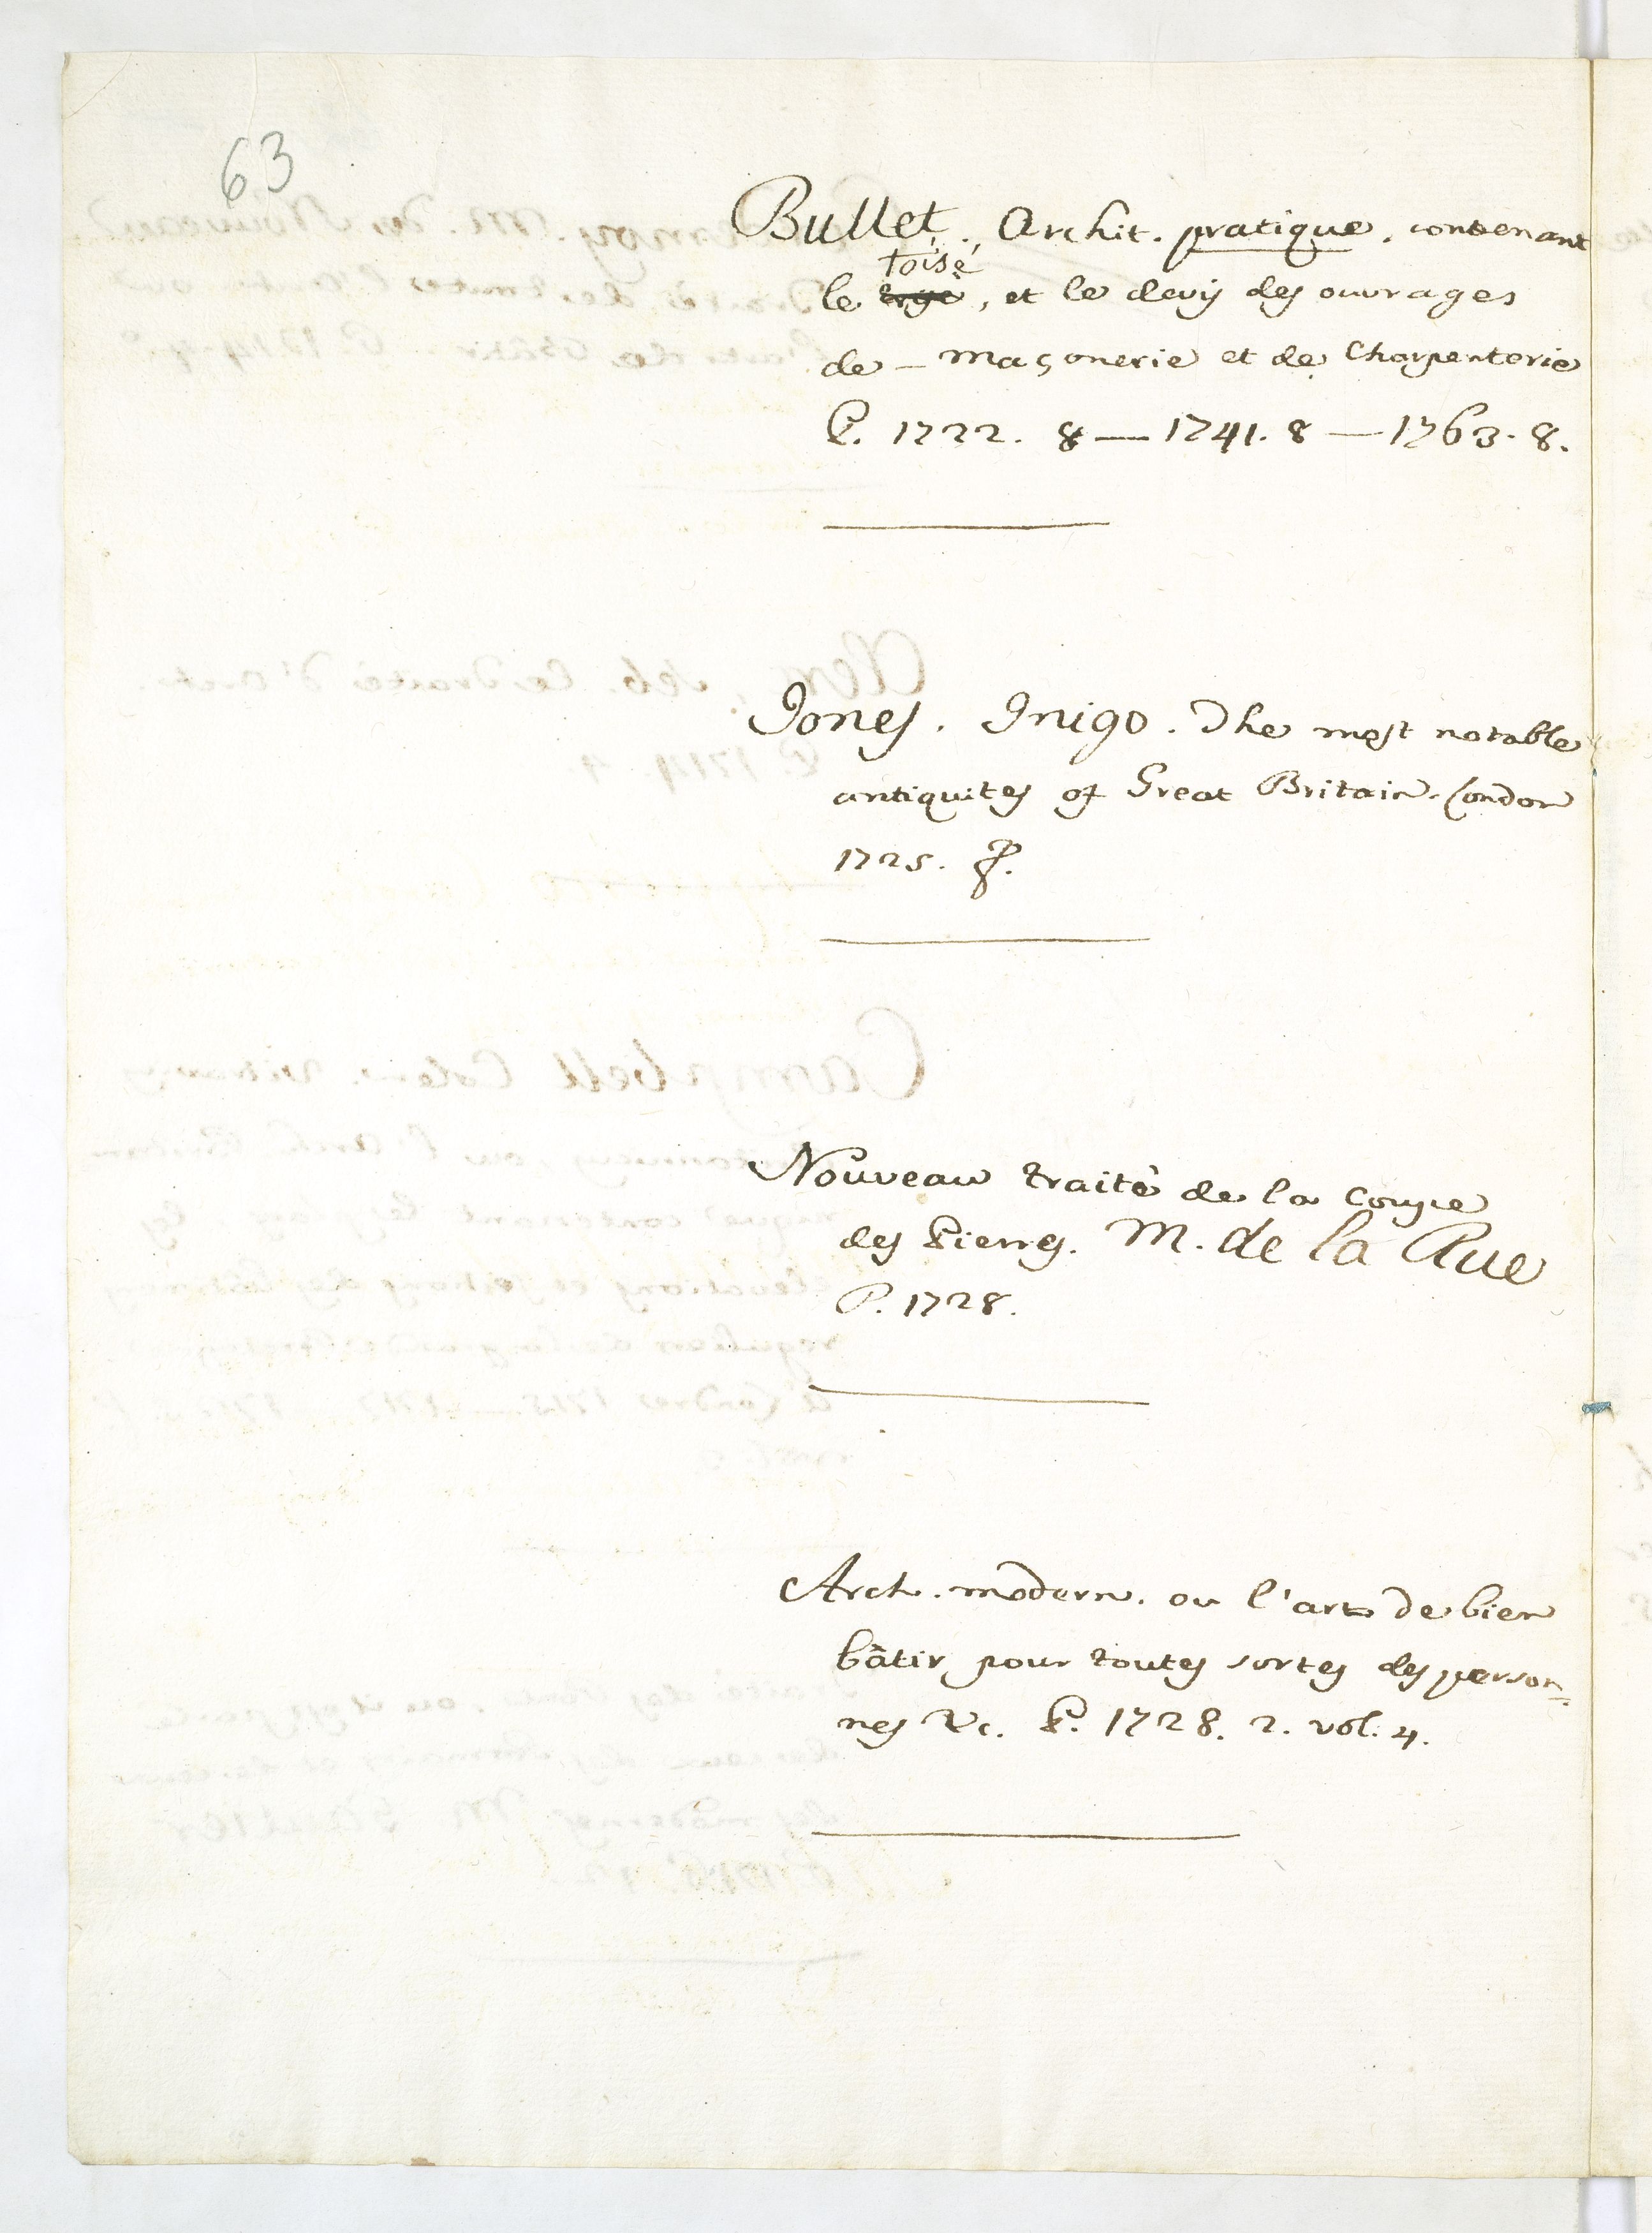 63
Bullet. Archit. pratique. contenant
toisé
le , et le devis des ouvrages
de - maçonerie et de Charpenterie
P. 1722. 8 — 1741. 8 — 1763. 8.
Jones. Inigo. The most notable
antiquites of Great Britain. London
1725. f.
Nouveau traité de la Coupe
des Pierres. M. de la Rue
P. 1728.
Arch. modern. ou l'art de bien
bâtir pour toutes sortes des person=
nes &c. P. 1728. 2. vol. 4.